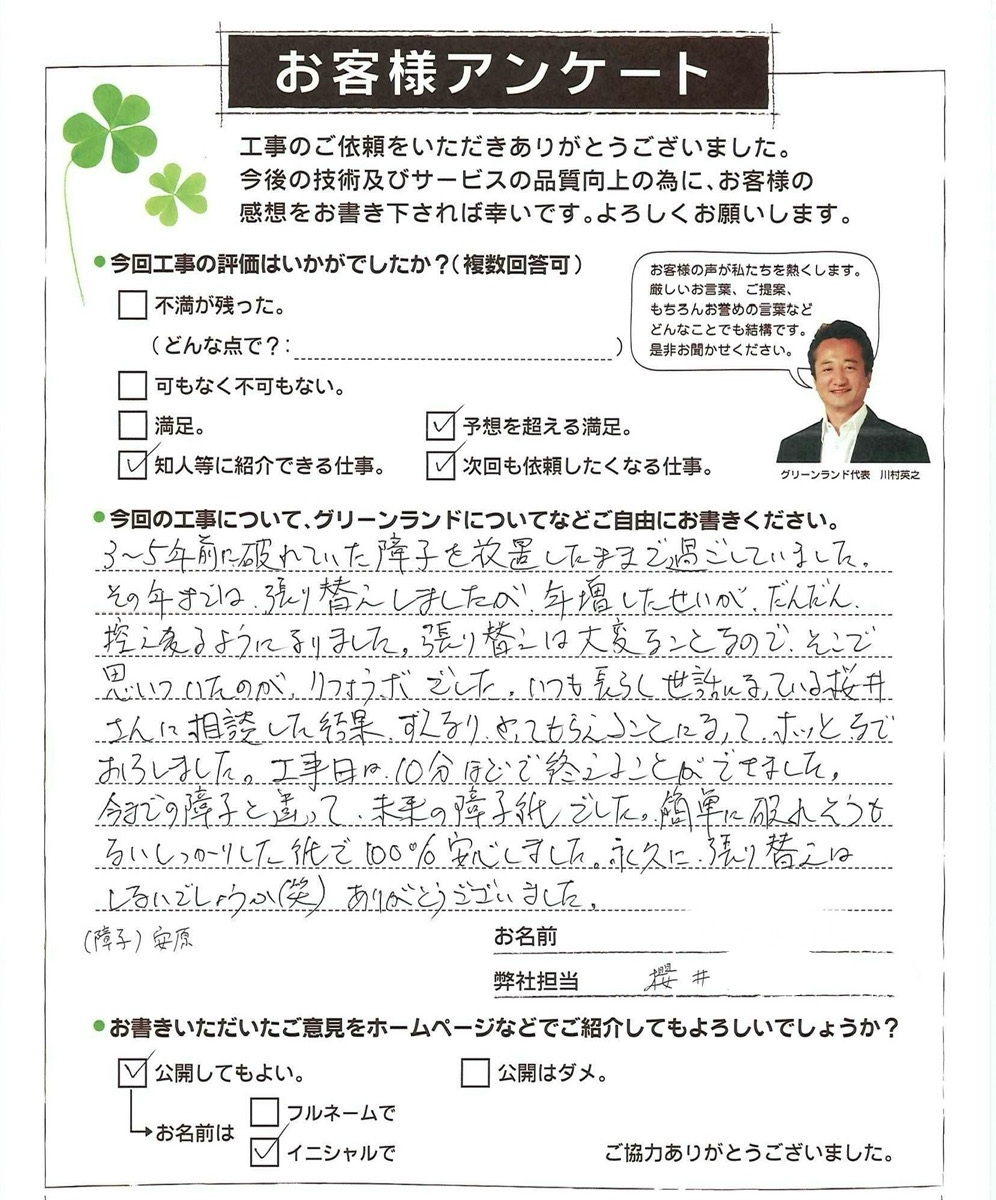 お客様アンケート
工事のご依頼をいただきありがとうございました。
今後の技術及びサービスの品質向上の為に、お客様の
感想をお書き下されば幸いです。よろしくお願いします。
●今回工事の評価はいかがでしたか?(複数回答可)
お客様の声が私たちを熱くします。
厳しいお言葉、ご提案、
もちろんお誉めの言葉など
どんなことでも結構です。
是非お聞かせください。
不満が残った。
(どんな点で?: )
可もなく不可もない。
満足。
予想を超える満足。
知人等に紹介できる仕事。
次回も依頼したくなる仕事。
グリーンランド代表 川村英之
●今回の工事について、グリーンランドについてなどご自由にお書きください。
3〜5年前に破れていた障子を放置したままで過ごしていました。
その年までは、張り替えしましたが、年増したせいか、だんだん、
控え変るようになりました。張り替えは大変なことなので、そこで
思いついたのが、リフォームでした。いつも長らく世話になっている桜井
さんに相談した結果、すんなり、やってもらえることになって、ホッと
おろしました。工事日は、10分ほどで終えることができました。
今までの障子と違って、未来の障子紙でした。簡単に破れそうも
ないしっかりした紙で100%安心しました。永久に張り替えは
しないでしょうか(笑) ありがとうございました。
(障子)安原
お名前
弊社担当 櫻井
●お書きいただいたご意見をホームページなどでご紹介してもよろしいでしょうか?
公開してもよい。
公開はダメ。
お名前は
フルネームで
イニシャルで
ご協力ありがとうございました。